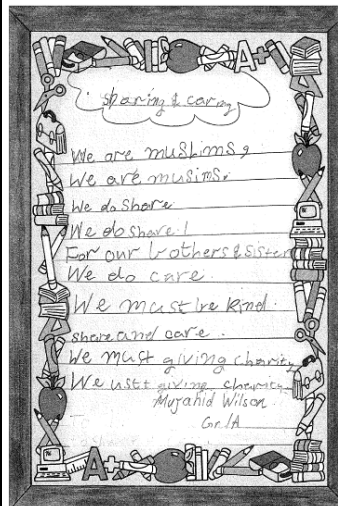 sharing & caring
We are muslims,
We are musims.
We do share
We do share!
For our brothers & sister
We do care.
We must be kind.
share and care.
We must giving charity
We ustt giving charity
Mujahid Wilson
Gr 1A
A+
A+